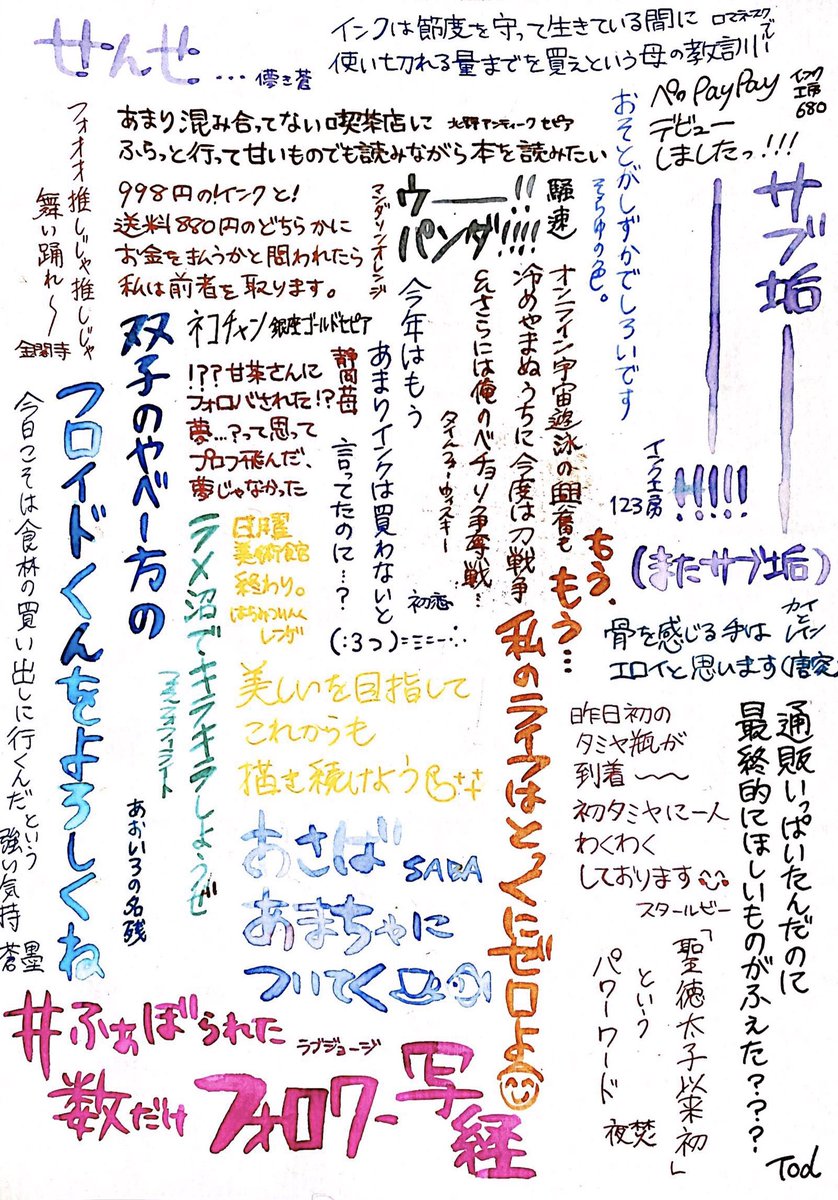 せんせ...
儚き蒼
インクは節度を守って生きている間に
使い切れる量までを買えという母の教訓
ロマネスクブルー
ペのPayPay
デビュー
しましたっ!!!
インク工房
680
あまり混み合ってない喫茶店に
北野アンティークセピア
ふらっと行って甘いものでも読みながら本を読みたい
フォオオ推しじゃ推しじゃ
舞い踊れ〜
金閣寺
998円の!インクと!
送料880円のどちらかに
お金を払うかと問われたら
私は前者を取ります。
マンダリンオレンジ
ウー!!
パンダ!!!!
騒速
おそとがしずかでしろいです
そらゆめの色。
サブ垢
ー
ー
!!!!!
(またサブ垢)
インク工房
123
オンライン宇宙遊泳の興奮も
冷めやまぬうちに今度は刀戦争
&さらには俺のべチョリ争奪戦…
タイムフォーウィスキー
今年はもう
あまりインクは買わないと
言ってたのに…?
(:3っ)=ミニー∵
初恋
ネコチャン
銀座ゴールドセピア
!??甘茶さんに
フォロバされた!?
夢...?って思って
プロフ飛んだ、
夢じゃなかった
静岡苺
双子のやべー方の
フロイドくんをよろしくね
あおいろの名残
今日こそは食材の買い出しに行くんだという
強い気持
蒼墨
ラメ沼でキラキラしようぜ
フォスフォフィライト
日曜
美術館
終わり。
はちみつりんく
レンゲ
もう、
もう…
私のライフはとっくにゼロよ
骨を感じる手は
エロイと思います(唐突
カイヤナイト
美しいを目指して
これからも
描き続けよう
昨日初の
タミヤ瓶が
到着〜〜
初タミヤに一人
わくわく
しております
スタールビー
通販いっぱいたんだのに
最終的にほしいものがふえた???
あさば
SABA
あまちゃに
ついてく
「聖徳太子以来初」
という
パワーワード
夜焚
#ふぁぼられた
ラブジョージ
数だけ
フォロワー写経
Tod